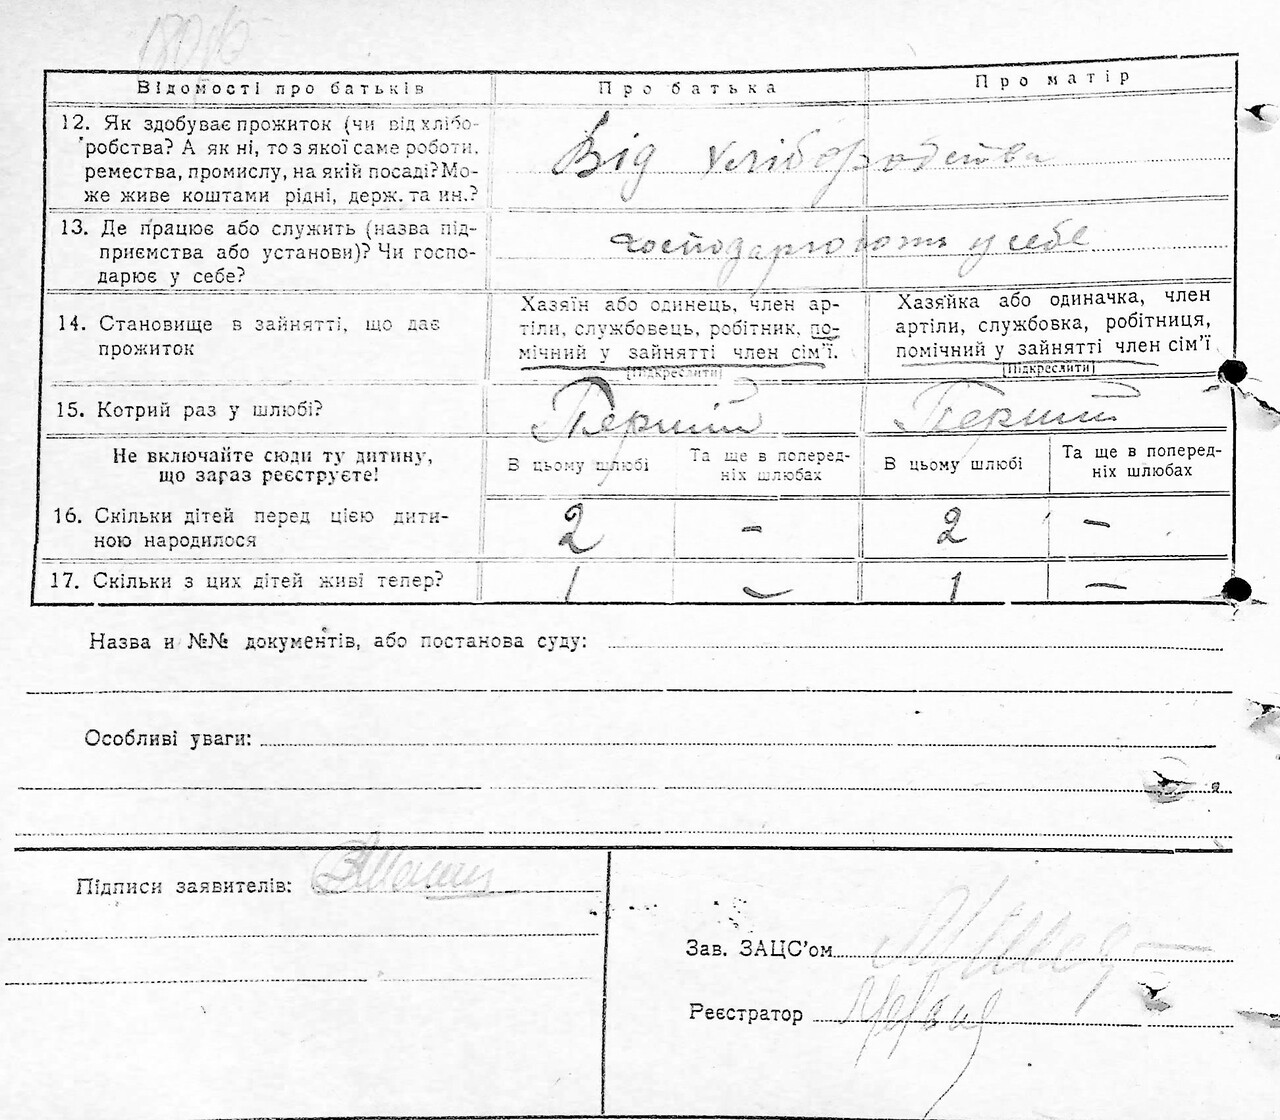 Відомості про батьків Про батька Про матір
12. Як здобуває прожиток (чи від хлібо-
робства? А як ні, то з якої саме роботи,
ремества, промислу, на якій посаді? Мо-
же живе коштами рідні, держ. та ин.?
Від хліборобства
13. Де працює або служить (назва під-
приємства або установи)? Чи госпо-
дарює у себе?
господарюють у себе
14. Становище в зайнятті, що дає
прожиток
Хазяїн або одинець, член ар-
тіли, службовець, робітник, по-
мічний у зайнятті член сім'ї.
[Підкреслити]
Хазяйка або одиначка, член
артіли, службовка, робітниця,
помічний у зайнятті член сім'ї
[Підкреслити]
15. Котрий раз у шлюбі? Перший Перший
Не включайте сюди ту дитину,
що зараз реєструєте!
В цьому шлюбі
Та ще в поперед-
ніх шлюбах
В цьому шлюбі
Та ще в поперед-
ніх шлюбах
16. Скільки дітей перед цією дити-
ною народилося
2 – 2 –
17. Скільки з цих дітей живі тепер? 1 – 1 –
Назва и №№ документів, або постанова суду:
Особливі уваги:
Підписи заявителів:
Зав. ЗАЦС'ом
Реєстратор